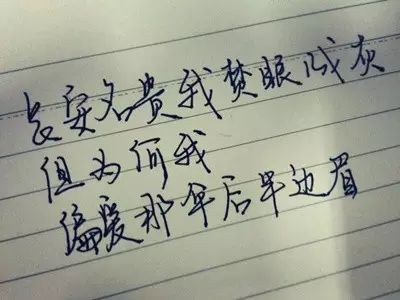 长安名贵我焚眼成灰
但为何我
偏爱那伞后半边眉